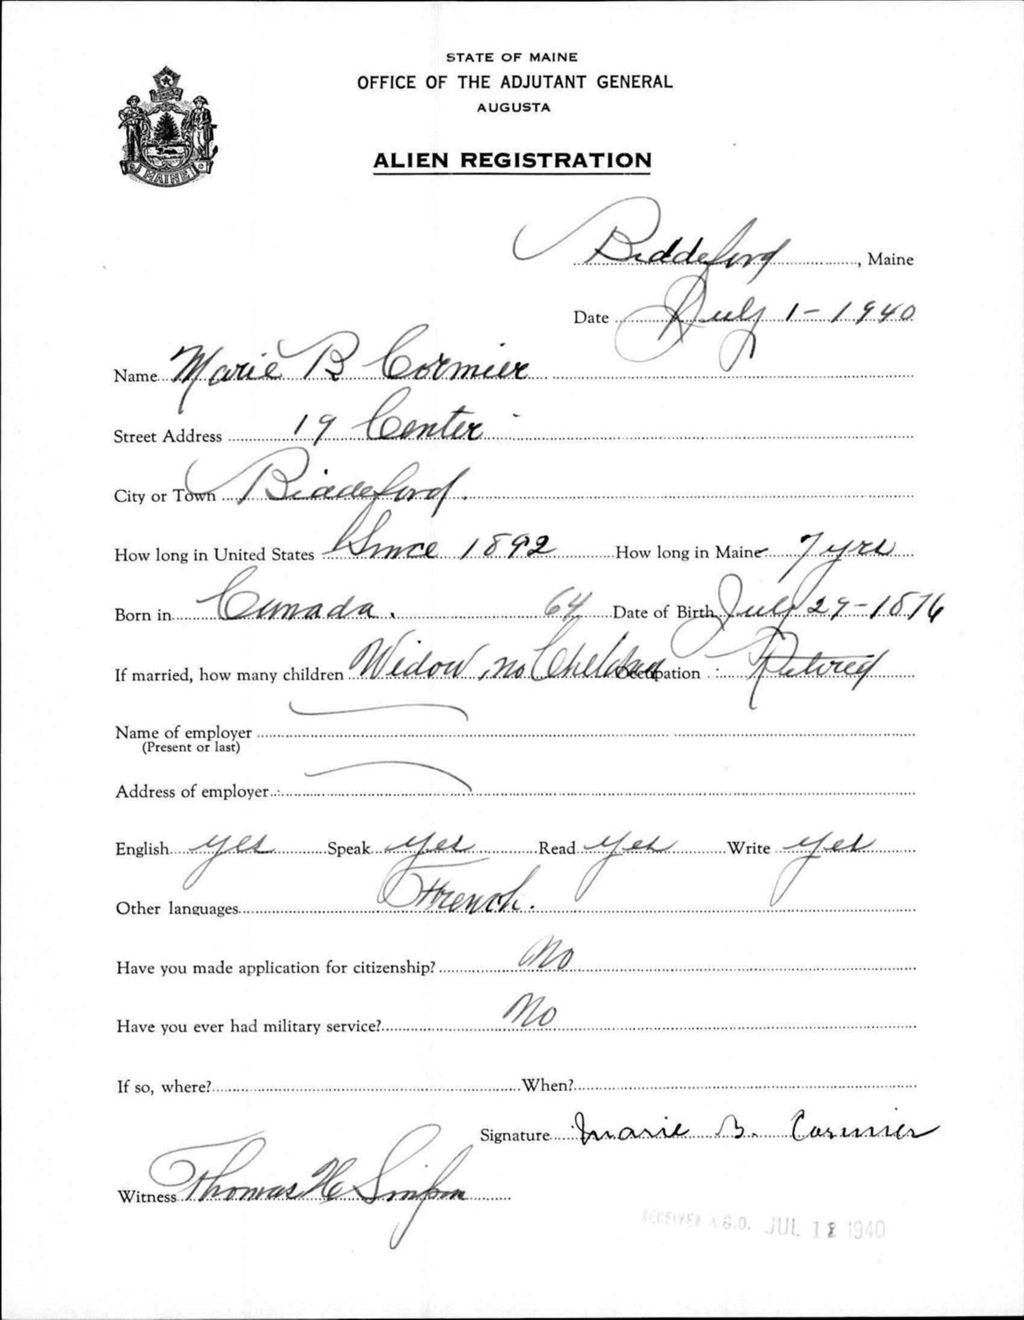 STATE OF MAINE
OFFICE OF THE ADJUTANT GENERAL
AUGUSTA
MAINE
ALIEN REGISTRATION
Biddeford, Maine
Date July 1-1940
Name Marie B Cormier
Street Address 19 Center
City or Town Biddeford.
How long in United States Since 1892 How long in Maine 7 yrs
Born in Canada. 64 Date of Birth July 29-1876
If married, how many children Widow, no Children Occupation Retired
Name of employer
(Present or last)
Address of employer
English yes Speak yes Read yes Write yes
Other languages French.
Have you made application for citizenship? No
Have you ever had military service? No
If so, where? When?
Signature Marie B. Cormier
Witness Thomas H Simpson
RECEIVED A.G.O. JUL 12 1940